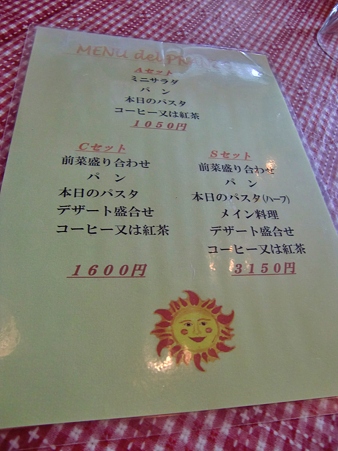 MENU del
Aセット
ミニサラダ
パン
本日のパスタ
コーヒー又は紅茶
1050円
Cセット
前菜盛り合わせ
パン
本日のパスタ
デザート盛合せ
コーヒー又は紅茶
1600円
Sセット
前菜盛り合わせ
パン
本日のパスタ(ハーフ)
メイン料理
デザート盛合せ
コーヒー又は紅茶
3150円